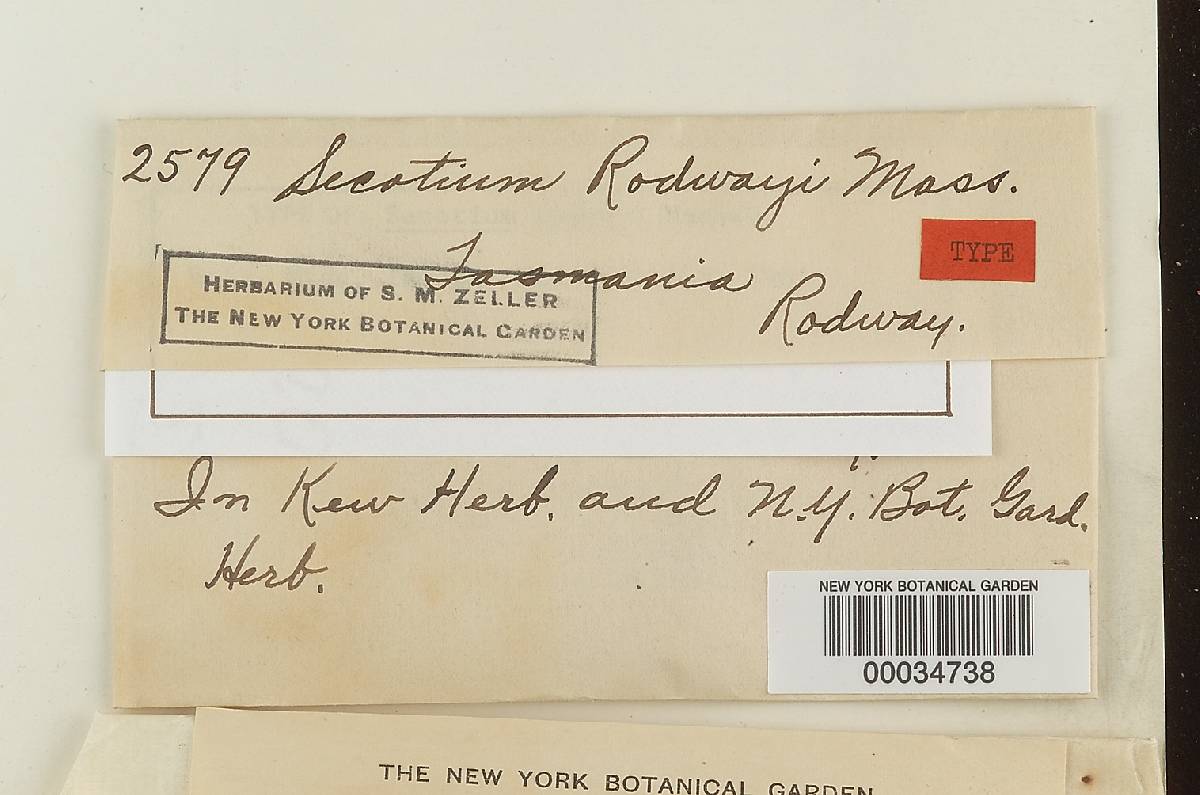 2579 Secotium Rodwayi Mass.
TYPE
Tasmania
HERBARIUM OF S. M. ZELLER
THE NEW YORK BOTANICAL GARDEN
Rodway.
In Kew Herb. and N.Y. Bot. Gard.
Herb.
NEW YORK BOTANICAL GARDEN
00034738
THE NEW YORK BOTANICAL GARDEN